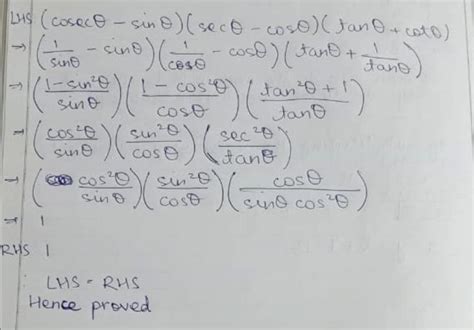 LHS (cosecθ - sinθ)(secθ - cosθ)(tanθ + cotθ)
→ (1/sinθ - sinθ)(1/cosθ - cosθ)(tanθ + 1/tanθ)
→ (1-sin²θ/sinθ)(1 - cos²θ/cosθ)(tan²θ + 1/tanθ)
→ (cos²θ/sinθ)(sin²θ/cosθ)(sec²θ/tanθ)
→ (cos²θ/sinθ)(sin²θ/cosθ)(cosθ/sinθ cos²θ)
→ 1
RHS 1
∴ LHS = RHS
Hence proved